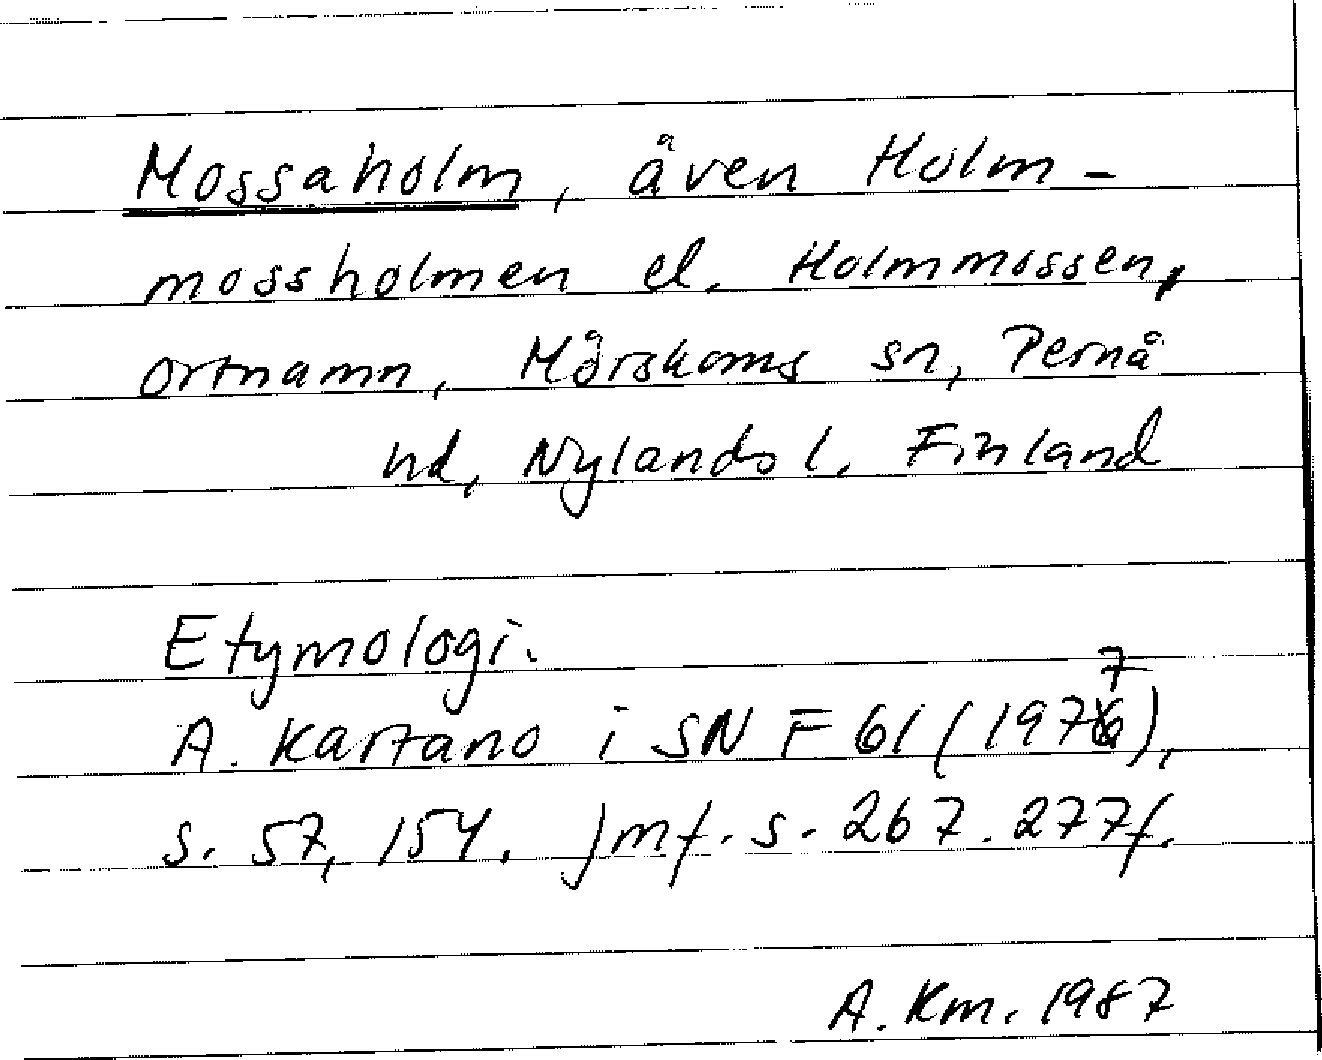 Mossaholm, även Holm-
mossholmen el. Holmmossen,
ortnamn, Mörskoms sn, Pernå
hd, Nylands l. Finland
Etymologi.
A. Kartano i SNF 61 (1977),
s. 57, 154. Jmf. s. 267. 277f.
A. Km. 1987